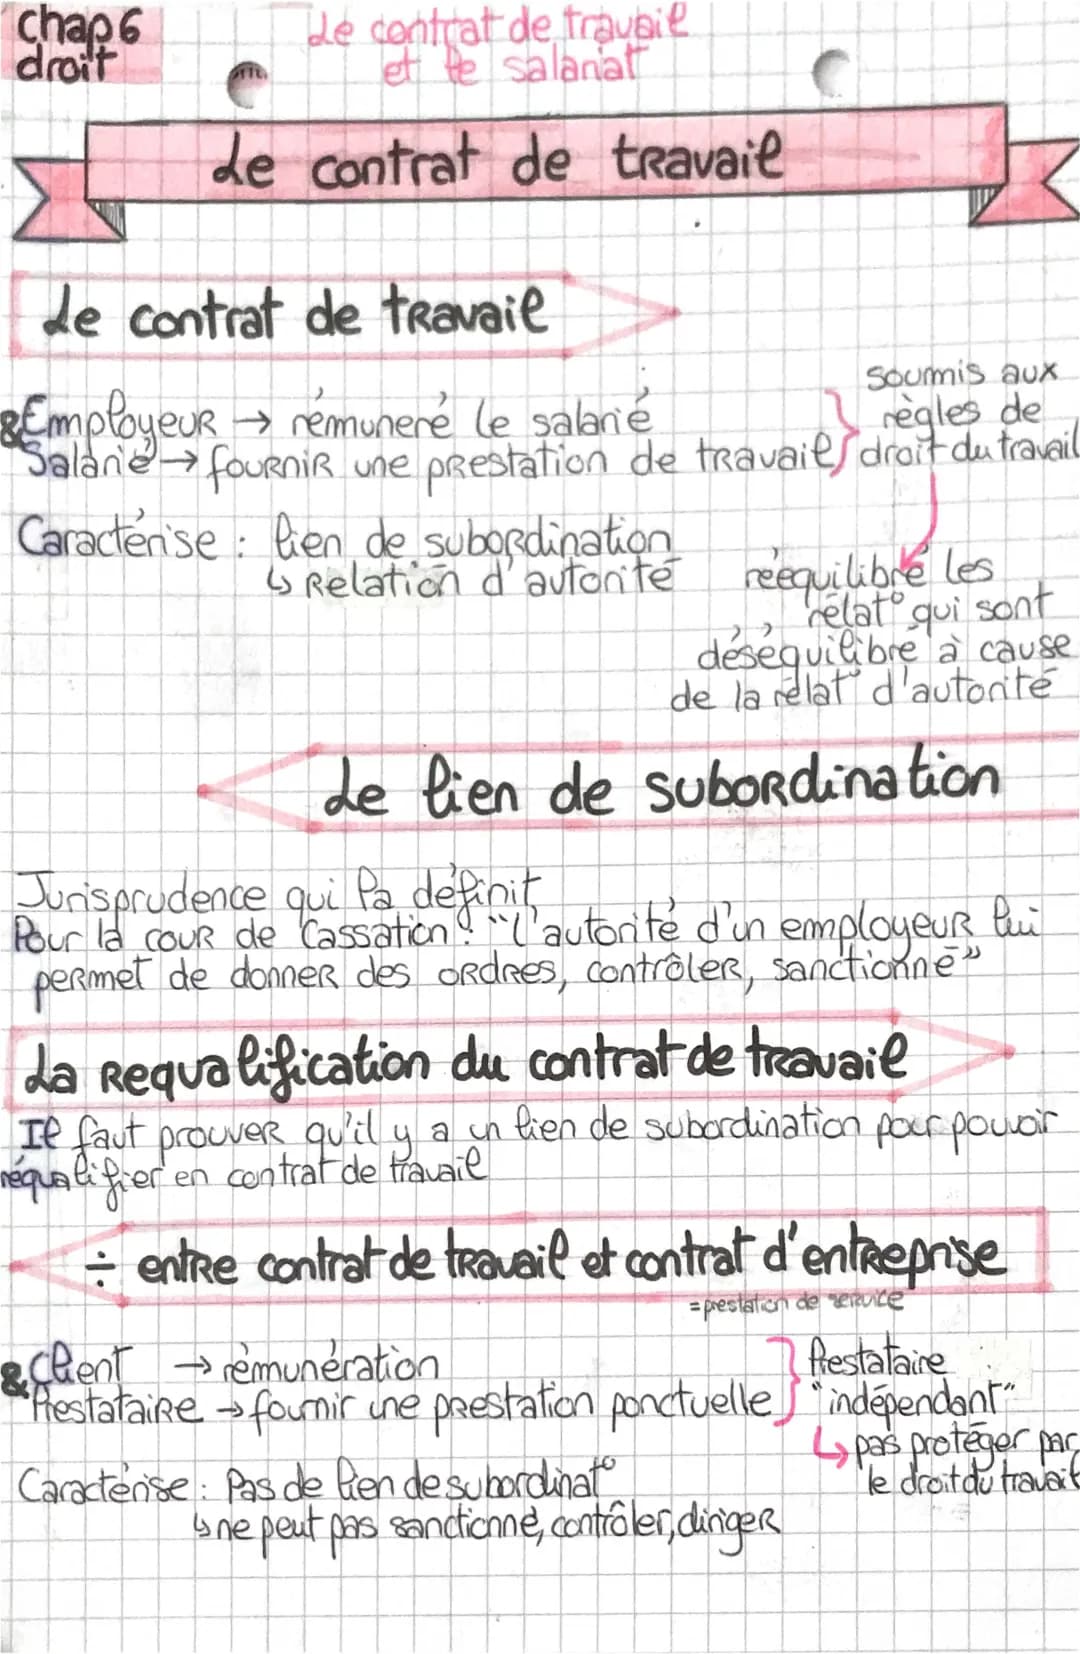 chap 6
droit
Le contrat de travail
et le salariat
Le contrat de travail
Le contrat de travail
soumis aux
règles de
droit du travail
& Employeur → rémuneré le salarié
Salarié → fournir une prestation de travail
Caractérise : lien de subordination
↳ Relation d'autorité
rééquilibré les
rélat° qui sont
déséquilibré à cause
de la rélat° d'autorité
Le lien de subordination
Jurisprudence qui l'a définit
Pour la cour de Cassation : "l'autorité d'un employeur lui
permet de donner des ordres, contrôler, sanctionné"
La requalification du contrat de travail
Il faut prouver qu'il y a un lien de subordination pour pouvoir
réqualifier en contrat de travail
÷ entre contrat de travail et contrat d'entreprise
= prestation de service
& Client → rémunération
Prestataire → fournir une prestation ponctuelle
Prestataire
"indépendant"
↳ pas protéger par
le droit du travail
Caractérise : Pas de lien de subordinat°
↳ ne peut pas sanctionné, contrôler, diriger